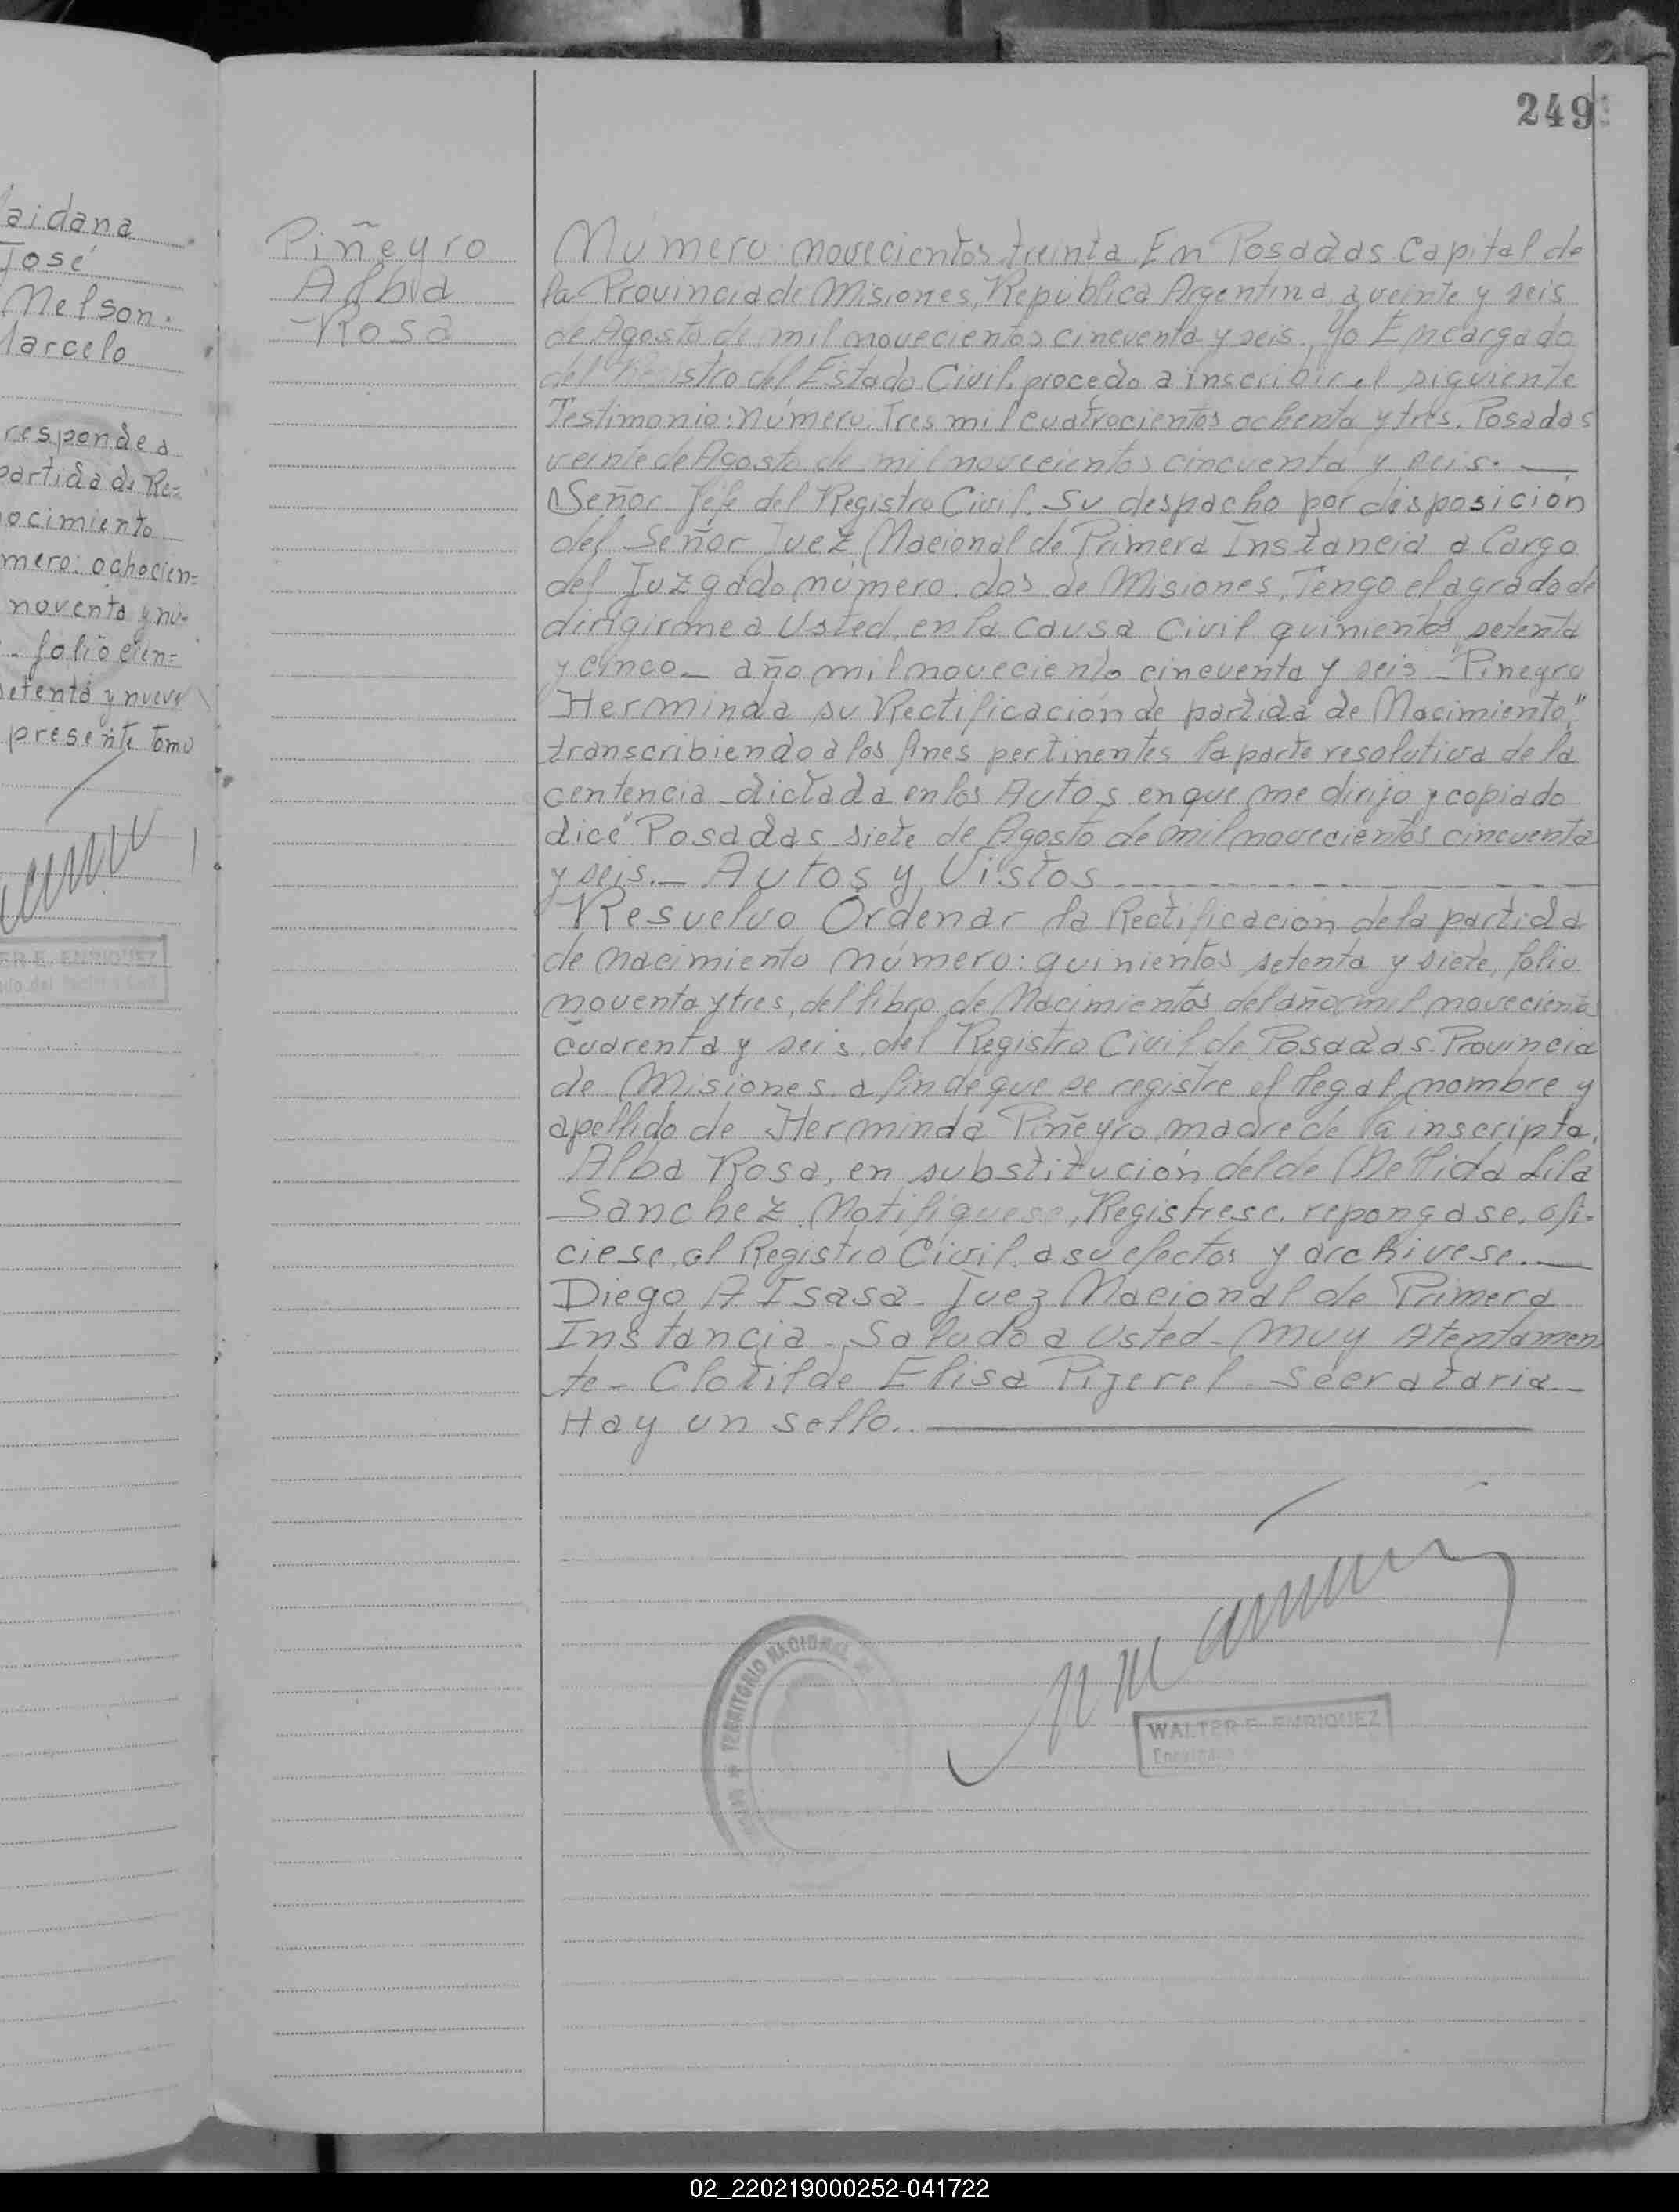 249
aidana
José
Nelson.
Marcelo
responde a
partida de Re=
nocimiento
mero: ochocien=
noventa y nu-
- folio cien=
setenta y nueve
presente Tomo
ER E. ENRIQUEZ
Piñeyro
Alba
Rosa
Número: novecientos treinta En Posadas Capital de
la Provincia de Misiones, República Argentina, a veinte y seis
de Agosto de mil novecientos cincuenta y seis, Yo Encargado
del Registro del Estado Civil, procedo a inscribir el siguiente
Testimonio: número. Tres mil cuatrocientos ochenta y tres. Posadas
veinte de Agosto de mil novecientos cincuenta y seis. —
Señor Jefe del Registro Civil. Su despacho por disposición
del Señor Juez Nacional de Primera Instancia a Cargo
del Juzgado número dos de Misiones, Tengo el agrado de
dirigirme a Usted, en la causa Civil quinientos setenta
y cinco – año mil noveciento cincuenta y seis – "Pinegro
Herminda su Rectificación de partida de Nacimiento,"
transcribiendo a los fines pertinentes la parte resolutiva de la
centencia dictada en los Autos en que me dirijo y copiado
dice "Posadas siete de Agosto de mil novecientos cincuenta
y seis. – Autos y Vistos
Resuelvo Ordenar la Rectificación de la partida
de nacimiento número: quinientos setenta y siete, folio
noventa y tres, del libro de Nacimientos del año mil novecientos
cuarenta y seis, del Registro Civil de Posadas Provincia
de Misiones a fin de que se registre el legal nombre y
apellido de Herminda Piñeyro, madre de la inscripta,
Alba Rosa, en substitución del de Nellida Lila
Sanchez. Notifiquese, Registrese. repongase. ofi=
ciese, al Registro Civil a su efectos y archivese. —
Diego A Isasa – Juez Nacional de Primera
Instancia – Saludo a Usted – muy Atentamen
te – Clotilde Elisa Pijerel – Secrataria –
Hay un sello. —
TERRITORIO NACIONAL
WALTER E. ENRIQUEZ
02_220219000252-041722